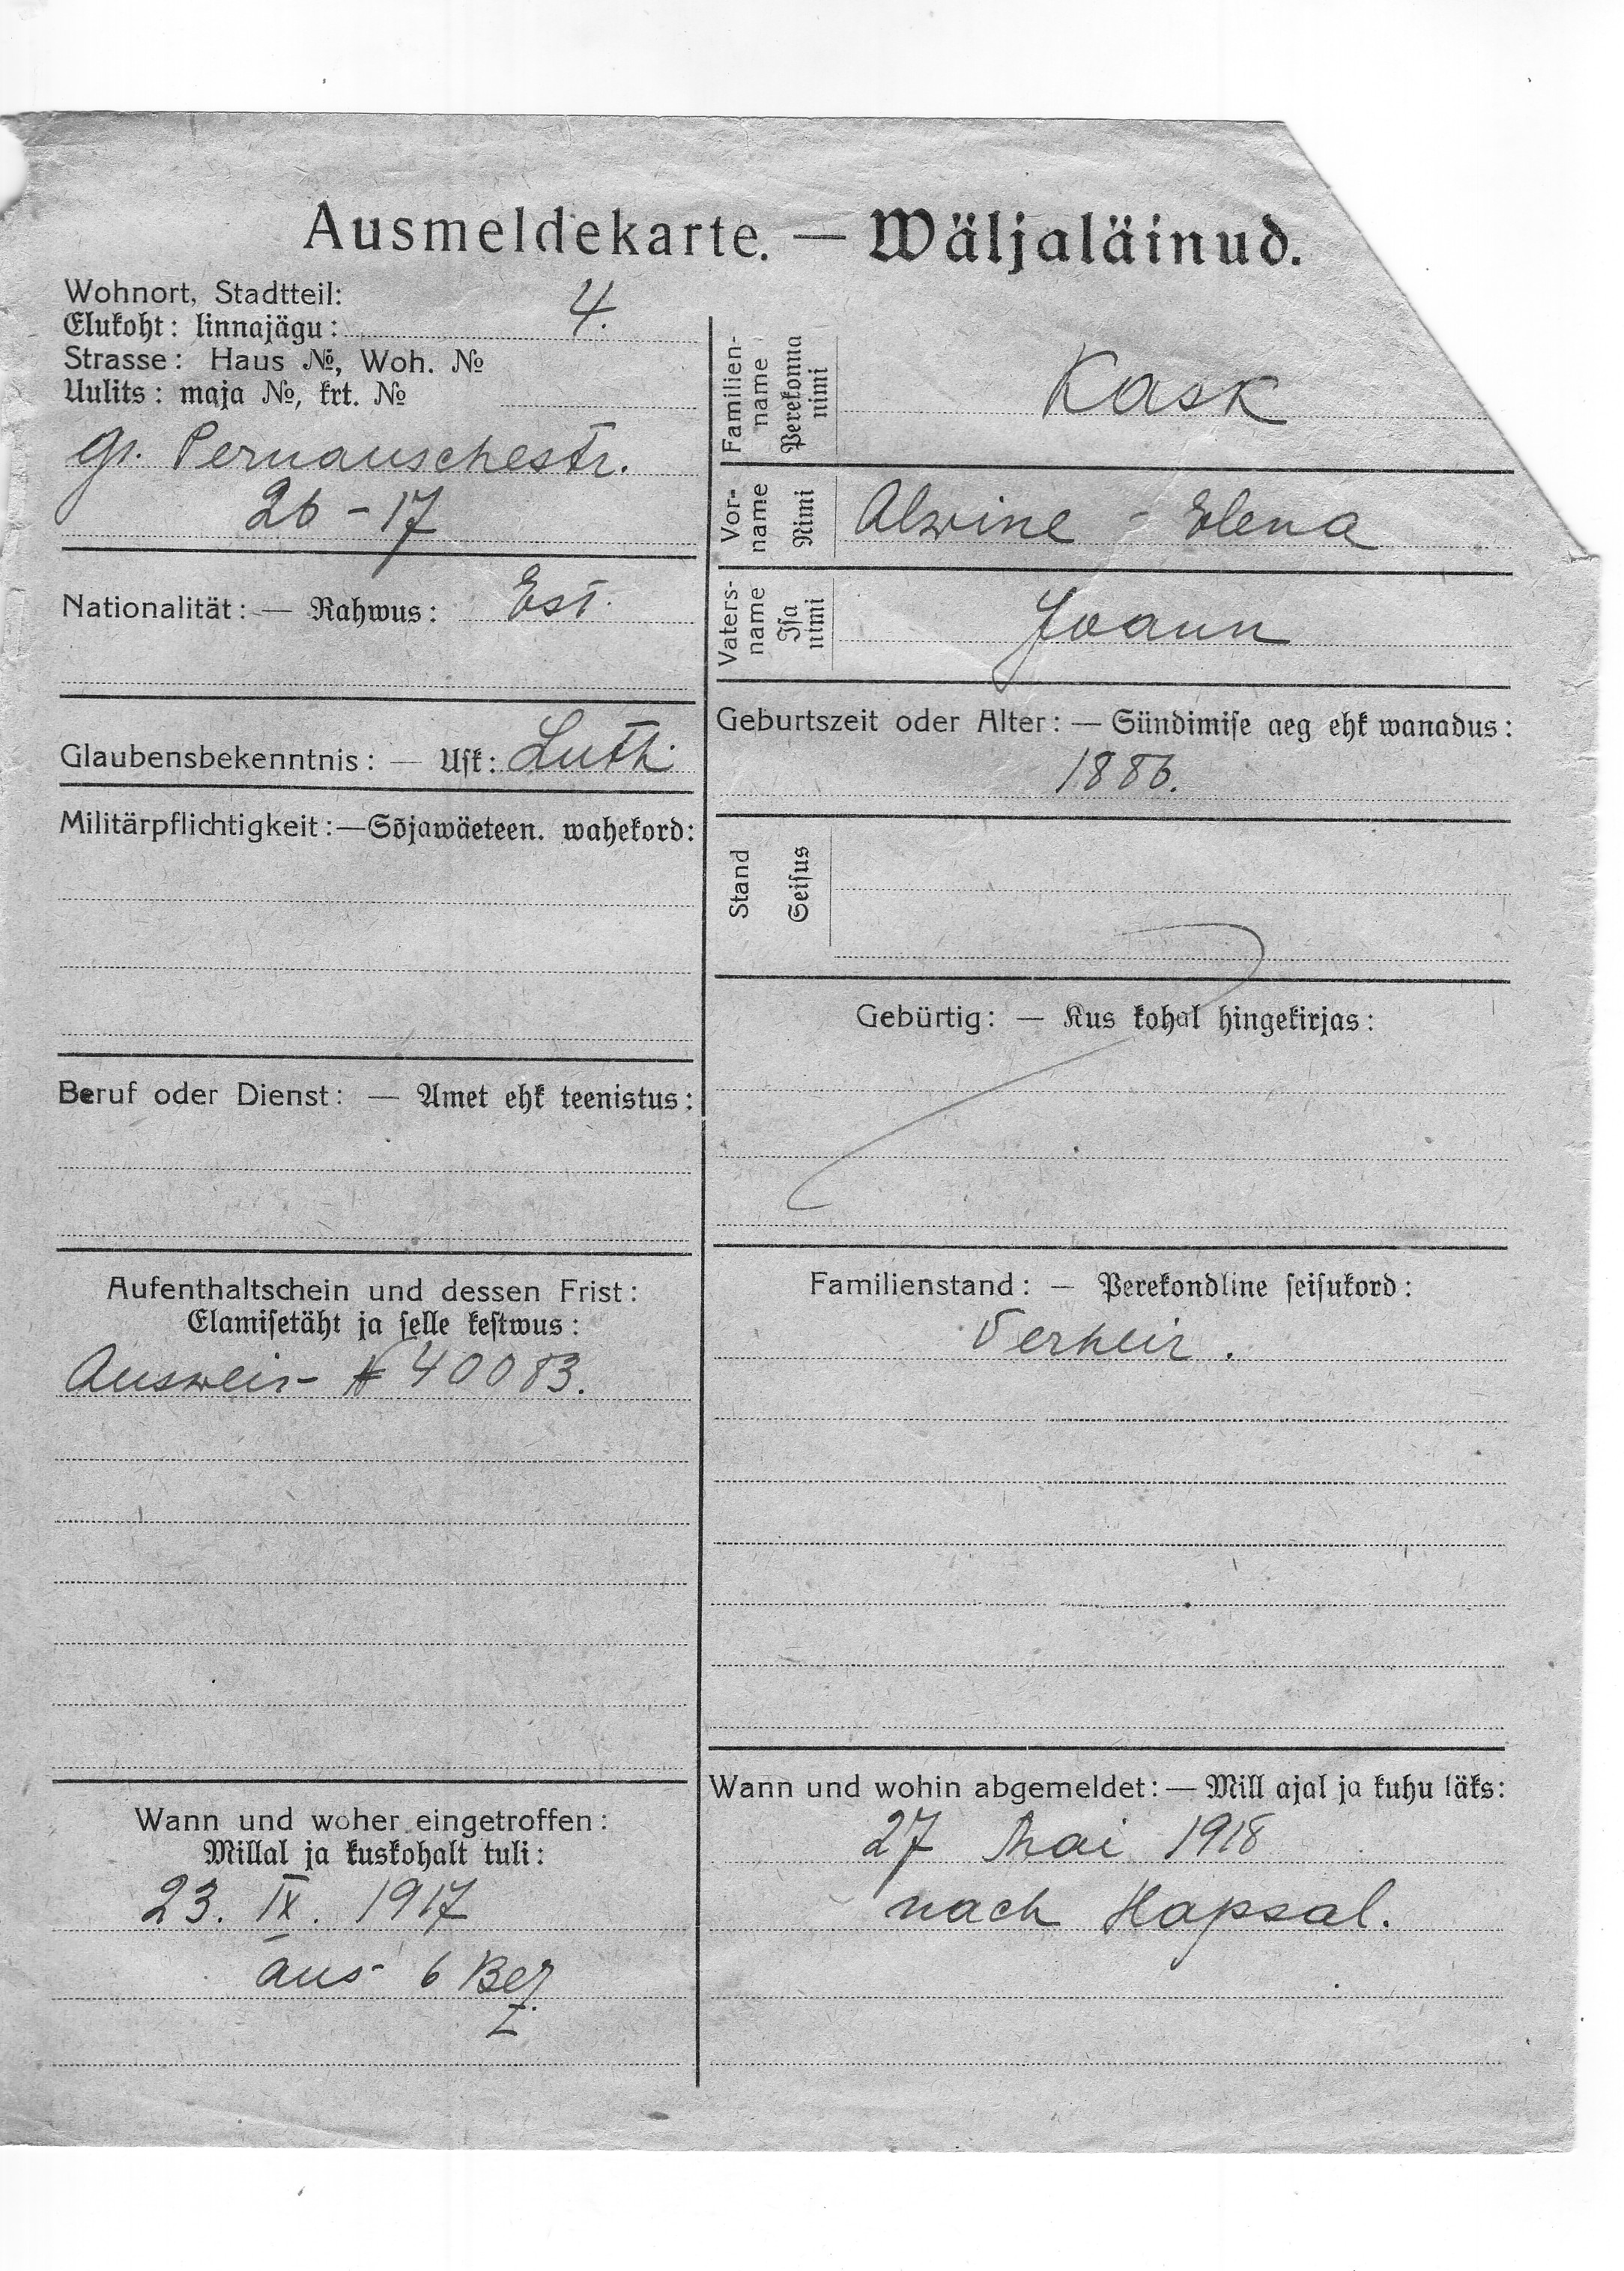 Ausmeldekarte. — Wäljaläinud.
Wohnort, Stadtteil:
Elukoht: linnajägu: 4.
Strasse: Haus №, Woh. №
Uulits: maja №, krt. №
gr. Pernauschestr.
26 - 17
Nationalität: — Rahwus: Est.
Glaubensbekenntnis: — Usk: Luth.
Militärpflichtigkeit: — Sõjawäeteen. wahekord:
Beruf oder Dienst: — Amet ehk teenistus:
Aufenthaltschein und dessen Frist:
Elamisetäht ja selle kestwus:
Ausweis № 40083.
Wann und woher eingetroffen:
Millal ja kuskohalt tuli:
23. IX. 1917
aus 6 Bez.
Familien-
name
Perekonna
nimi
Kask
Vor-
name
Nimi
Alwine - Elena
Vaters-
name
Isa
nimi
Joann
Geburtszeit oder Alter: — Sündimise aeg ehk wanadus:
1886.
Stand
Seisus
Gebürtig: — Kus kohal hingekirjas:
Familienstand: — Perekondline seisukord:
Verheir.
Wann und wohin abgemeldet: — Mill ajal ja kuhu läks:
27 Mai 1918
nach Hapsal.